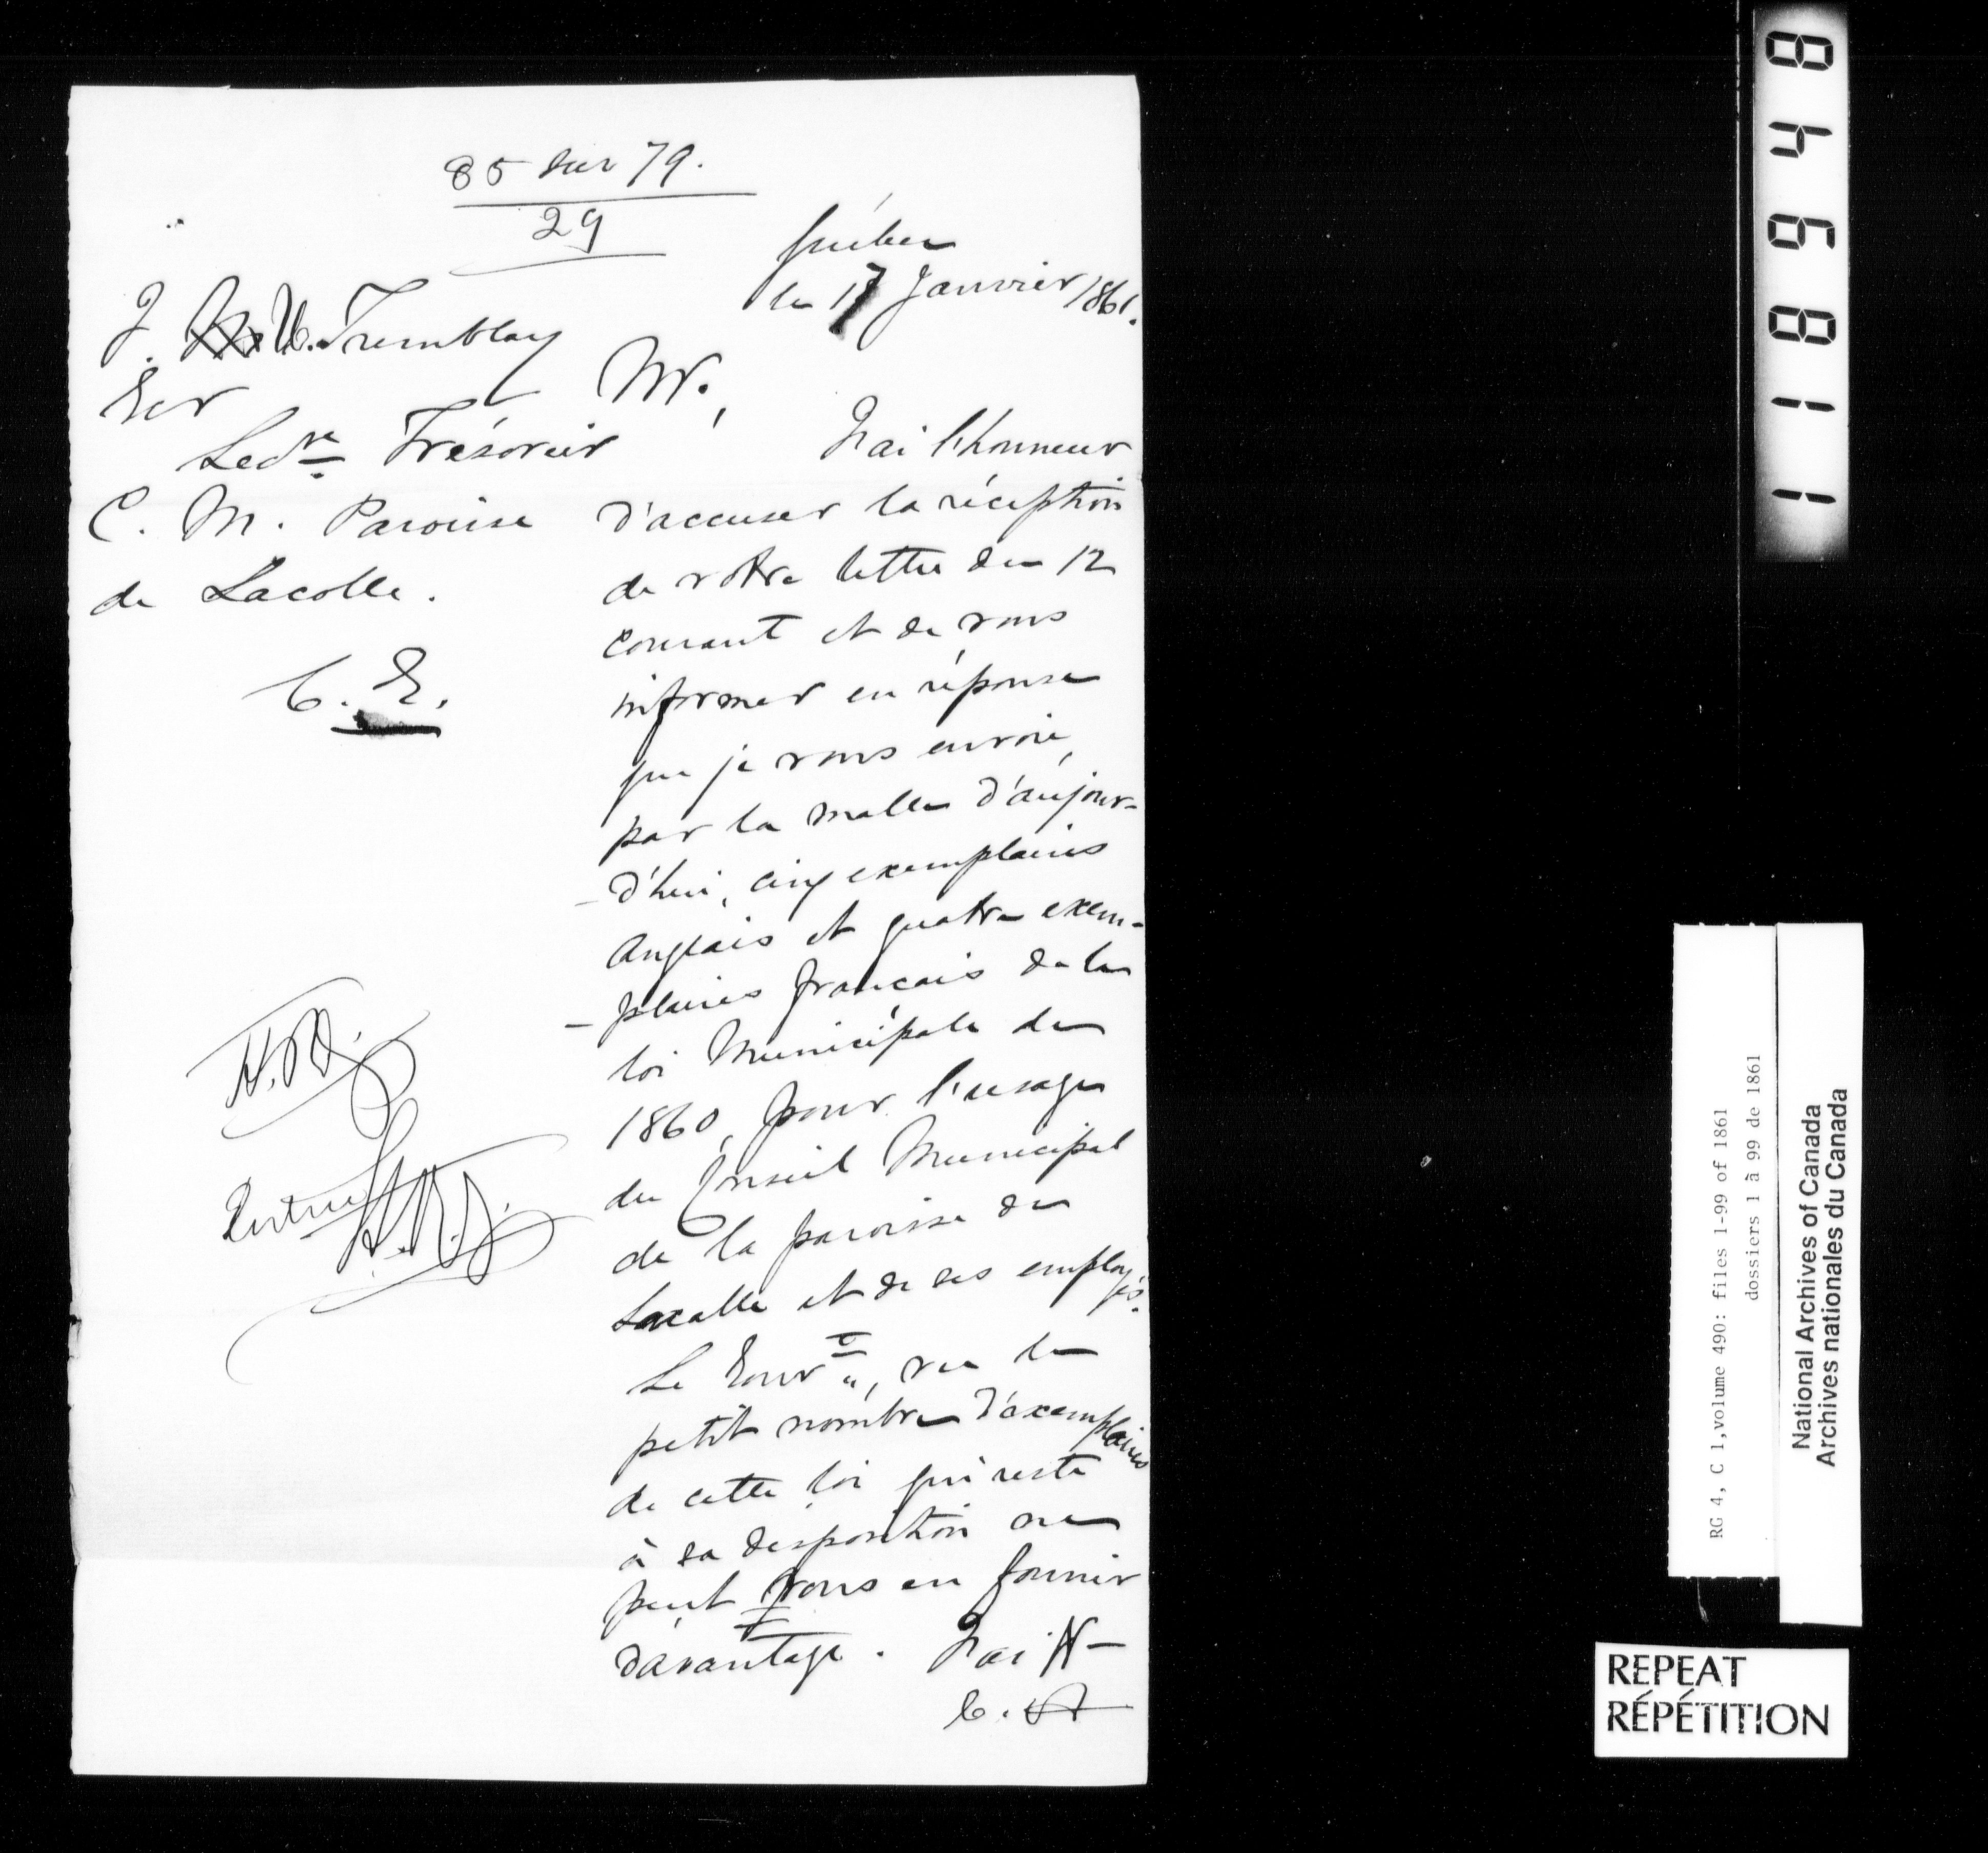 85 sur 79.
29
Québec
le 17 Janvier 1861.
J. U. Tremblay
Ecr
Secre Trésorier
C. M. Paroisse
de Lacolle.
C. E.
Mr.,
J'ai l'honneur
d'accuser la réception
de votre lettre du 12
courant et de vous
informer en réponse
que je vous envoie,
par la malle d'aujour-
-d'hui, cinq exemplaires
Anglais et quatre exem-
-plaires français de la
loi Municipale de
1860, pour l'usage
du Conseil Municipal
de la paroisse de
Lacolle et de ses employés.
Le Gouvt, vu le
petit nombre d'exemplaires
de cette loi qui reste
à sa disposition ne
peut vous en fournir
davantage. J'ai
C. A
8 4 9 8 1 1
RG 4, C 1, volume 490: files 1-99 of 1861
dossiers 1 à 99 de 1861
National Archives of Canada
Archives nationales du Canada
REPEAT
RÉPÉTITION